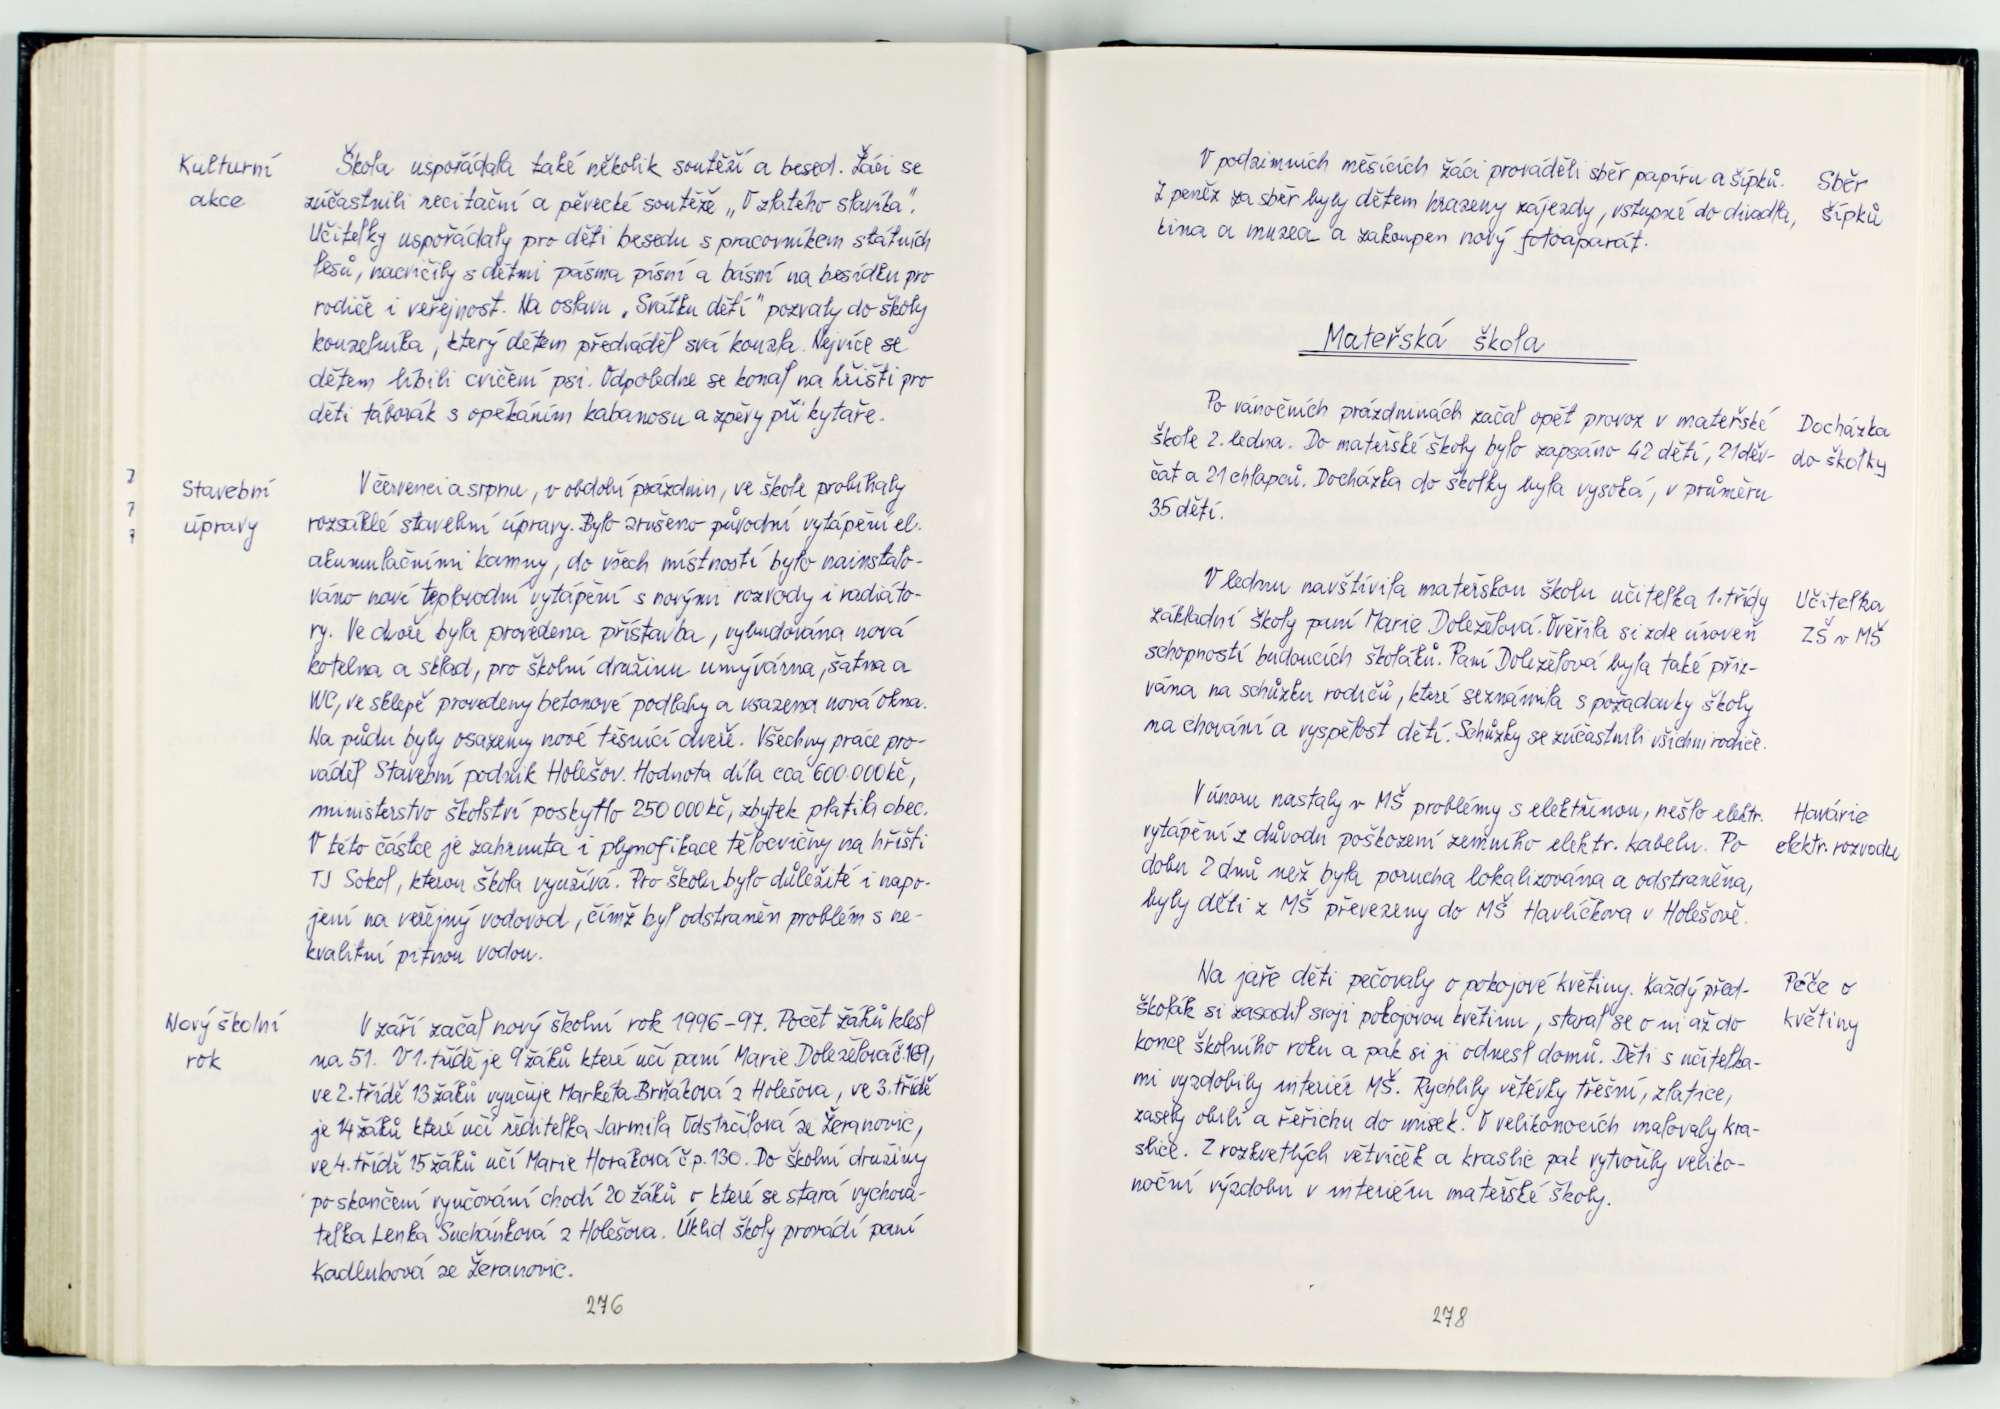 Kulturní
akce
Škola uspořádala také několik soutěží a besed. Žáci se
zúčastnili recitační a pěvecké soutěže „U zlatého slavíka“.
Učitelky uspořádaly pro děti besedu s pracovníkem státních
lesů, nacvičily s dětmi pásma písní a básní na besídku pro
rodiče i veřejnost. Na oslavu „Svátku dětí“ pozvaly do školy
kouzelníka, který dětem předváděl svá kouzla. Nejvíce se
dětem líbili cvičení psi. Odpoledne se konal na hřišti pro
děti táborák s opékáním kabanosu a zpěvy při kytaře.
Stavební
úpravy
V červenci a srpnu, v období prázdnin, ve škole probíhaly
rozsáhlé stavební úpravy. Bylo zrušeno původní vytápění el.
akumulačními kamny, do všech místností bylo nainstalo-
váno nové teplovodní vytápění s novými rozvody i radiáto-
ry. Ve dvoře byla provedena přístavba, vybudována nová
kotelna a sklad, pro školní družinu umývárna, šatna a
WC, ve sklepě provedeny betonové podlahy a vsazena nová okna.
Na půdu byly osazeny nové těsnící dveře. Všechny práce pro-
váděl Stavební podnik Holešov. Hodnota díla cca 600.000 kč,
ministerstvo školství poskytlo 250 000 kč, zbytek platila obec.
V této částce je zahrnuta i plynofikace tělocvičny na hřišti
TJ Sokol, kterou škola využívá. Pro školu bylo důležité i napo-
jení na veřejný vodovod, čímž byl odstraněn problém s ne-
kvalitní pitnou vodou.
Nový školní
rok
V září začal nový školní rok 1996-97. Počet žáků klesl
na 51. V 1. třídě je 9 žáků které učí paní Marie Doleželová č. 169,
ve 2. třídě 13 žáků vyučuje Markéta Brňáková z Holešova, ve 3. třídě
je 14 žáků které učí ředitelka Jarmila Odstrčilová ze Žeranovic,
ve 4. třídě 15 žáků učí Marie Horáková č p. 130. Do školní družiny
po skončení vyučování chodí 20 žáků o které se stará vychova-
telka Lenka Suchánková z Holešova. Úklid školy provádí paní
Kadlubová ze Žeranovic.
276
V podzimních měsících žáci prováděli sběr papíru a šípků.
Z peněz za sběr byly dětem hrazeny zájezdy, vstupné do divadla,
kina a muzea a zakoupen nový fotoaparát.
Sběr
šípků
Mateřská škola
Po vánočních prázdninách začal opět provoz v mateřské
škole 2. ledna. Do mateřské školy bylo zapsáno 42 dětí, 21 děv-
čat a 21 chlapců. Docházka do školky byla vysoká, v průměru
35 dětí.
Docházka
do školky
V lednu navštívila mateřskou školu učitelka 1. třídy
základní školy paní Marie Doleželová. Ověřila si zde úroveň
schopností budoucích školáků. Paní Doleželová byla také při-
zvána na schůzku rodičů, které seznámila s požadavky školy
na chování a vyspělost dětí. Schůzky se zúčastnili všichni rodiče.
Učitelka
ZŠ v MŠ
V únoru nastaly v MŠ problémy s elektřinou, nešlo elektr.
vytápění z důvodu poškození zemního elektr. kabelu. Po
dobu 2 dnů než byla porucha lokalizována a odstraněna,
byly děti z MŠ převezeny do MŠ Havlíčkova v Holešově.
Havárie
elektr. rozvodu
Na jaře děti pečovaly o pokojové květiny. Každý před-
školák si zasadil svoji pokojovou květinu, staral se o ni až do
konce školního roku a pak si ji odnesl domů. Děti s učitelka-
mi vyzdobily interiér MŠ. Rychlily větévky třešní, zlatice,
zasely obilí a řeřichu do misek. O velikonocích malovaly kra-
slice. Z rozkvetlých větviček a kraslic pak vytvořily veliko-
noční výzdobu v interiéru mateřské školy.
Péče o
květiny
278